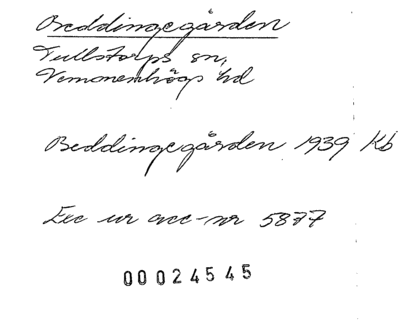 Beddingegården
Tullstorps sn,
Vemmenhögs hd
Beddingegården 1939 Kb
Exc ur acc-nr 5877
00024545